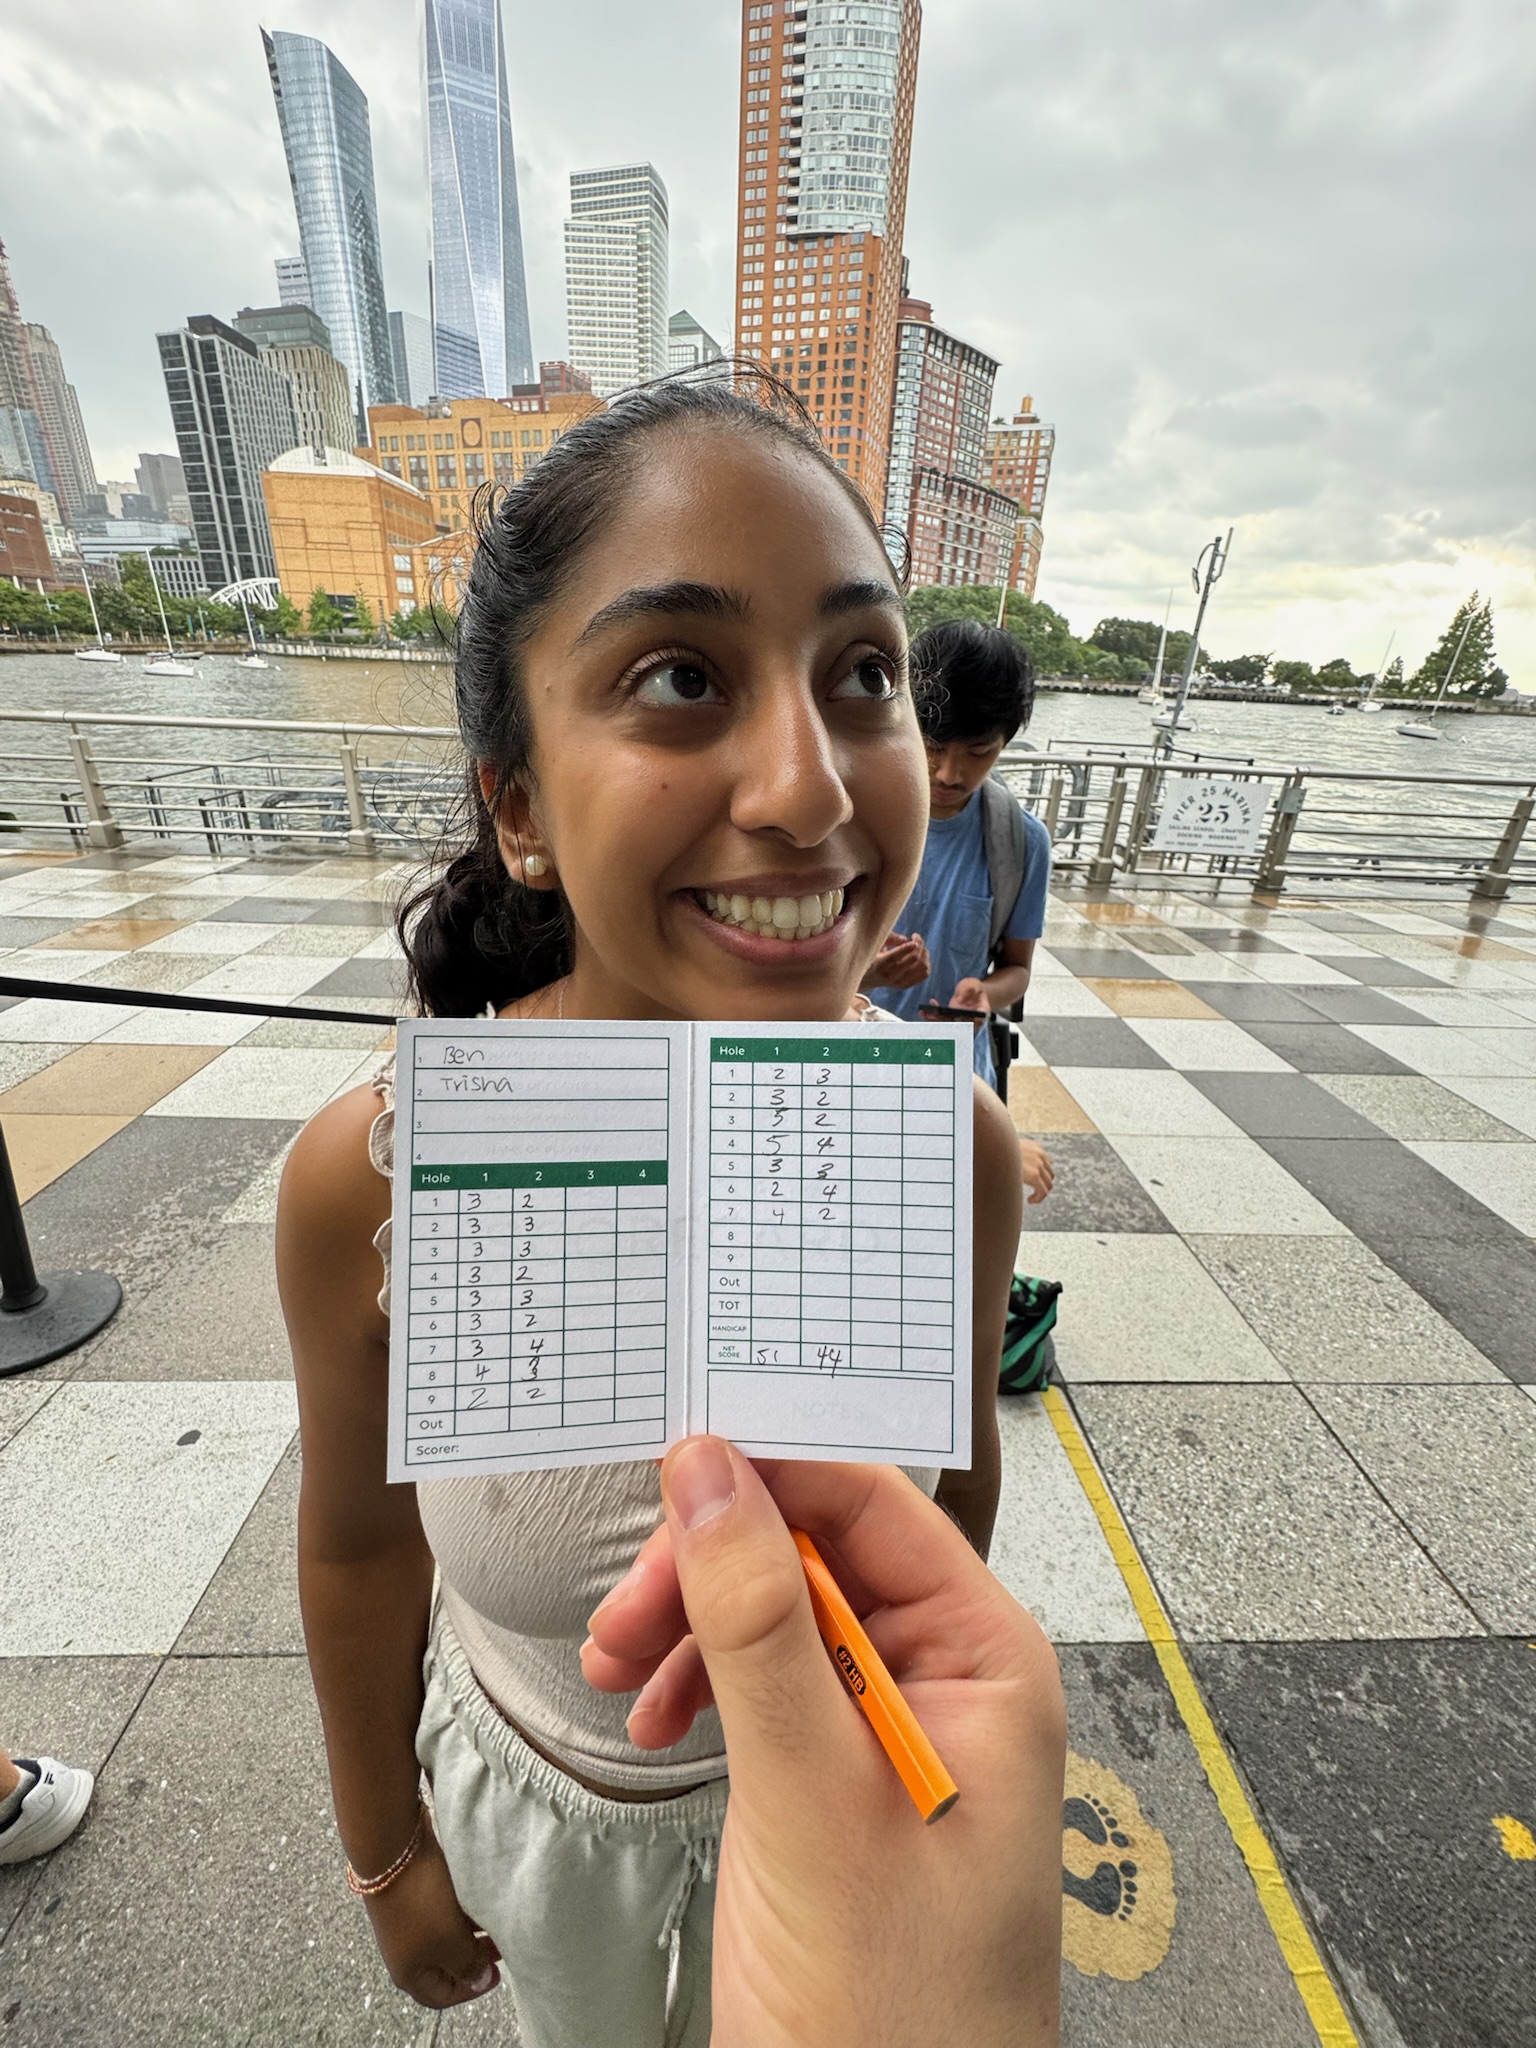 PIER 25 MARINA
25
SAILING SCHOOL CHARTERS
DOCKING MOORINGS
1 Ben
2 Trisha
3
4
Hole 1 2 3 4
1 3 2
2 3 3
3 3 3
4 3 2
5 3 3
6 3 2
7 3 4
8 4 3
9 2 2
Out
Scorer:
Hole 1 2 3 4
1 2 3
2 3 2
3 5 2
4 5 4
5 3 3
6 2 4
7 4 2
8
9
Out
TOT
HANDICAP
NET
SCORE 51 44
NOTES
#2 HB